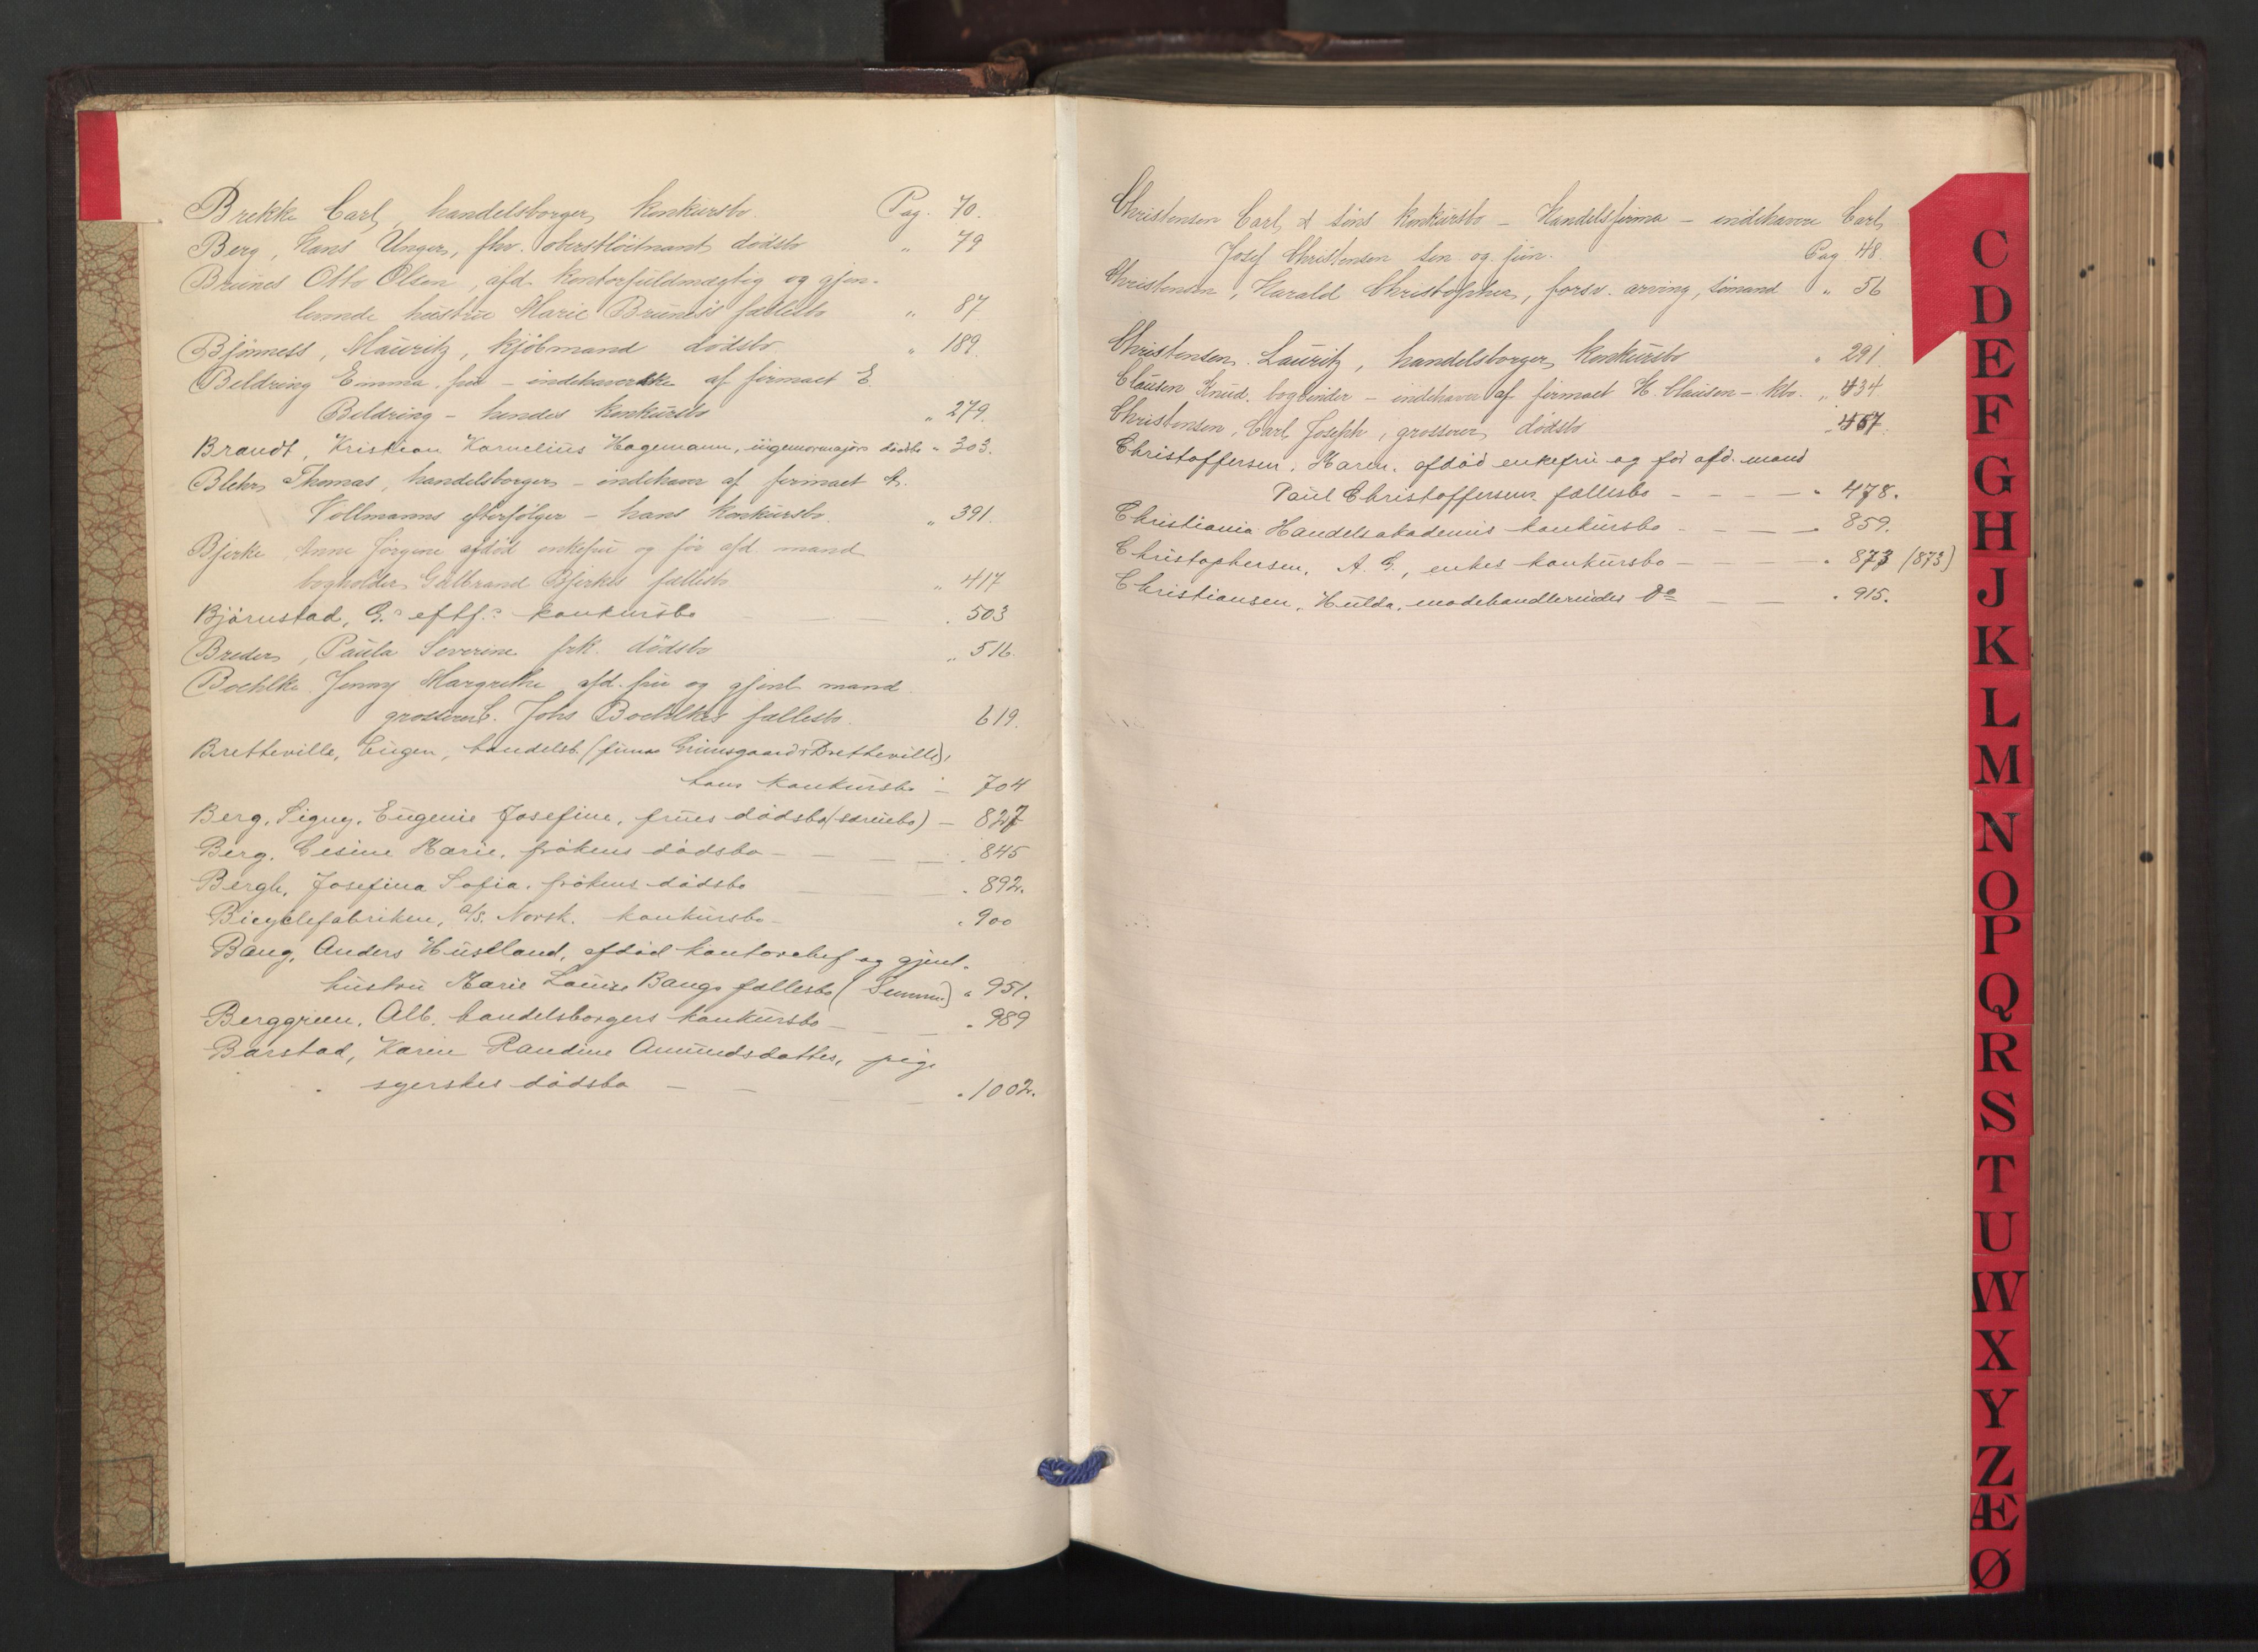 Brekke Carl, handelsborger, konkursbo Pag. 70.
Berg, Hans Unger, fhv. oberstlöitnant dödsbo " 79
Brünes Otto Olsen, afd. kontorfuldmægtig og gjen-
levende hüstrü Marie Brüness fællesbo " 87
Bjönness, Mauritz, kjöbmand dödsbo " 189.
Beldring Emma, frü – indehaverske af firmaet E.
Beldring – hendes konkursbo " 279.
Brandt, Kristian Kornelius Hagemann, ingeniørmajors dödsbo " 303.
Blehr, Thomas, handelsborger – indehaver af firmaet A.
Vollmanns efterfølger – hans konkursbo. " 391.
Bjerke Anne Jörgine afdöd enkefrü og för afd. mand
bogholder Gulbrand Bjerkes fællesbo " 417
Björnstad, G.s eftf.s konkursbo . 503
Breder, Paula Severine frk. dödsbo " 516.
Boehlke Jenny Margrethe afd. frü og gjenl. mand
grosserer C. Johs Boehlkes fællesbo. 619.
Bretteville, Eugen, handelsb. (firma Grimsgaard & Bretteville),
hans konkursbo – 704
Berg, Signy, Eugenie Josefine, früs dödsbo (særuebo) – 827
Berg, Gesine Marie, frökens dödsbo – – – . 845
Bergh, Josefina Sofia, frökens dödsbo . 892.
Bicyclefabriken, A/S. Norsk. konkursbo – . 900
Bang, Anders Hüseland, afdöd kontorchef og gjenl.
hüstrü Marie Louise Bangs fællesbo ( ) " 951.
Berggreen, Alb. handelsborgers konkursbo – – . 989
Barstad, Karen Randine Amundsdatter, pige
syerskes dödsbo – – . 1002.
Christensen Carl & söns konkursbo – Handelsfirma – indehavere Carl
Josef Christensen sen. og jun. Pag 48.
Christensen, Harald Christopher, forsv. arving, sömand " 56
Christensen, Lauritz, handelsborger, konkursbo " 291.
Clausen Knud, bogbinder – indehaver af firmaet H. Clausen – kbo. " 434
Christensen, Carl Joseph, grosserer, dödsbo " 457.
Christoffersen, Karen, afdöd enkefrü og för afd. mand
Paul Christoffersens fællesbo – – – – " 478.
Christiania Handelsakademis konkursbo – – – . 859.
Christophersen, A. G., enkes konkursbo – – – . 873 (873)
Christiansen, Hulda, modehandlerindes Do – – . 915.
C
D
E
F
G
H
J
K
L
M
N
O
P
Q
R
S
T
U
W
X
Y
Z
Æ
Ø